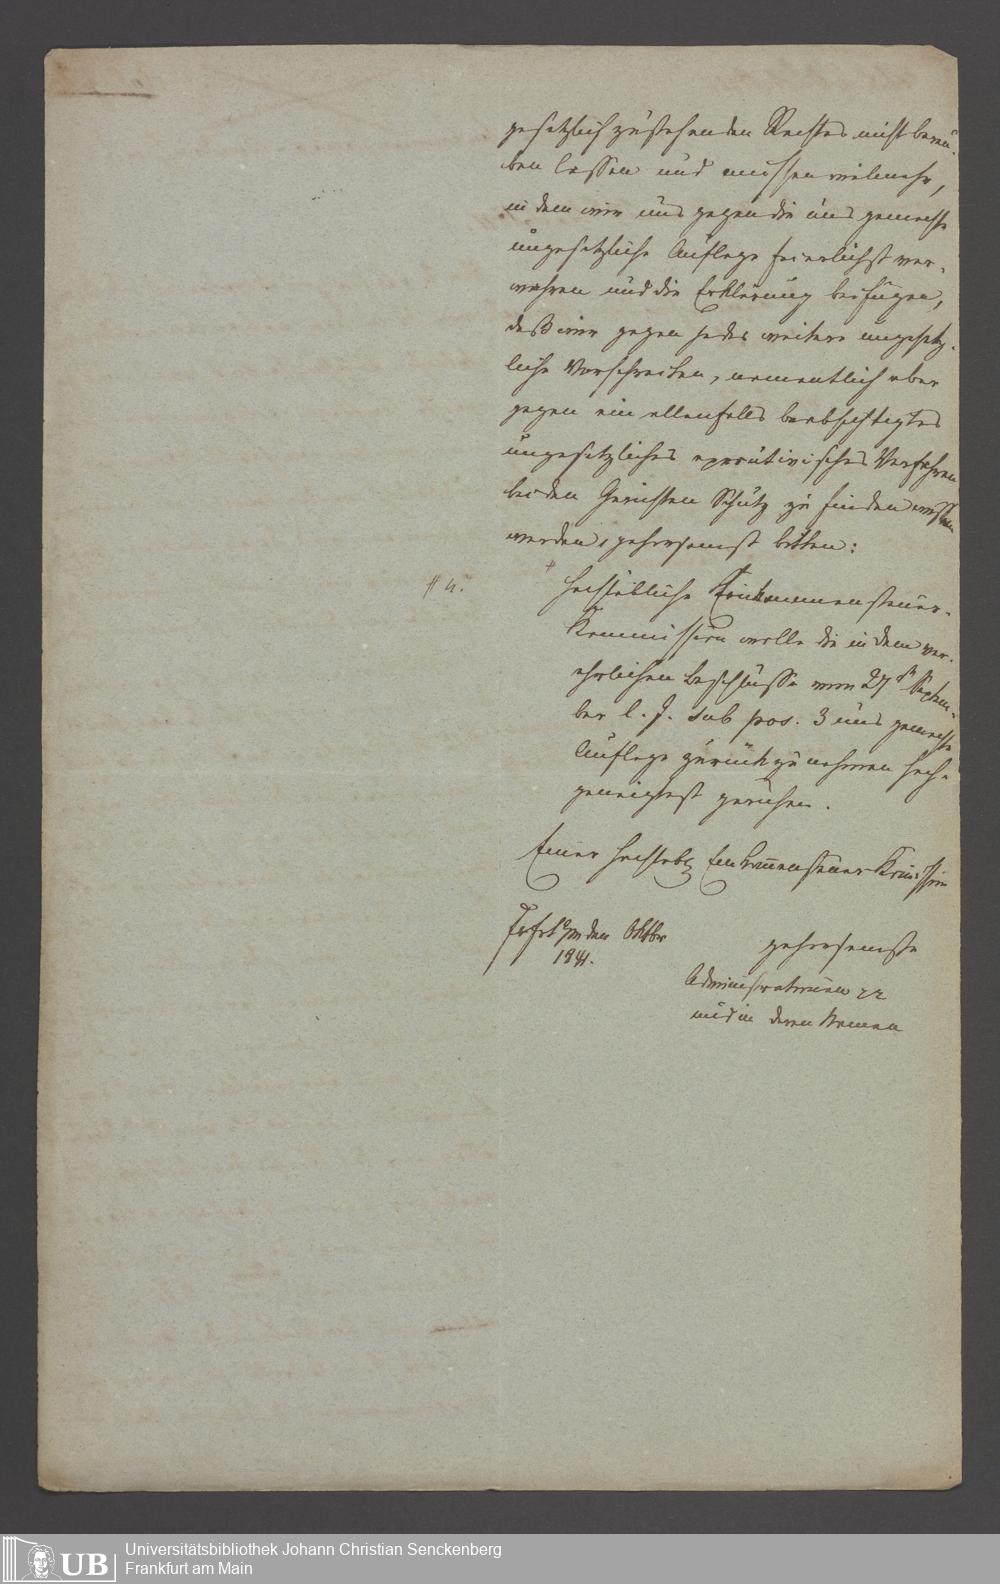 gesetzlich zustehenden Rechtes nicht berau-
ben lassen und müssen vielmehr,
indem wir uns gegen die uns gemachte
ungesetzliche Auflage feierlichst ver-
wahren und die Erklärung beifügen,
daß wir gegen jedes weitere ungesetz-
liche Vorschreiten, namentlich aber
gegen ein allenfalls beabsichtigtes
ungesetzliches executivisches Verfahren
bei den Gerichten Schutz zu finden wissen
werden, gehorsamst bitten:
hochlöbliche Einkommensteuer-
Kommission wolle die in dem ver-
ehrlichen Beschlusse vom 27 Septem-
ber l. J. sub pos. 3 uns gemachte
Auflage zurückzunehmen hoch-
geneigtest geruhen.
Einer hochlöbl Einkommensteuer-Kommission
Frkft den Oktbr
1841.
gehorsamste
Administration
und in deren Namen
Universitätsbibliothek Johann Christian Senckenberg
UB
Frankfurt am Main